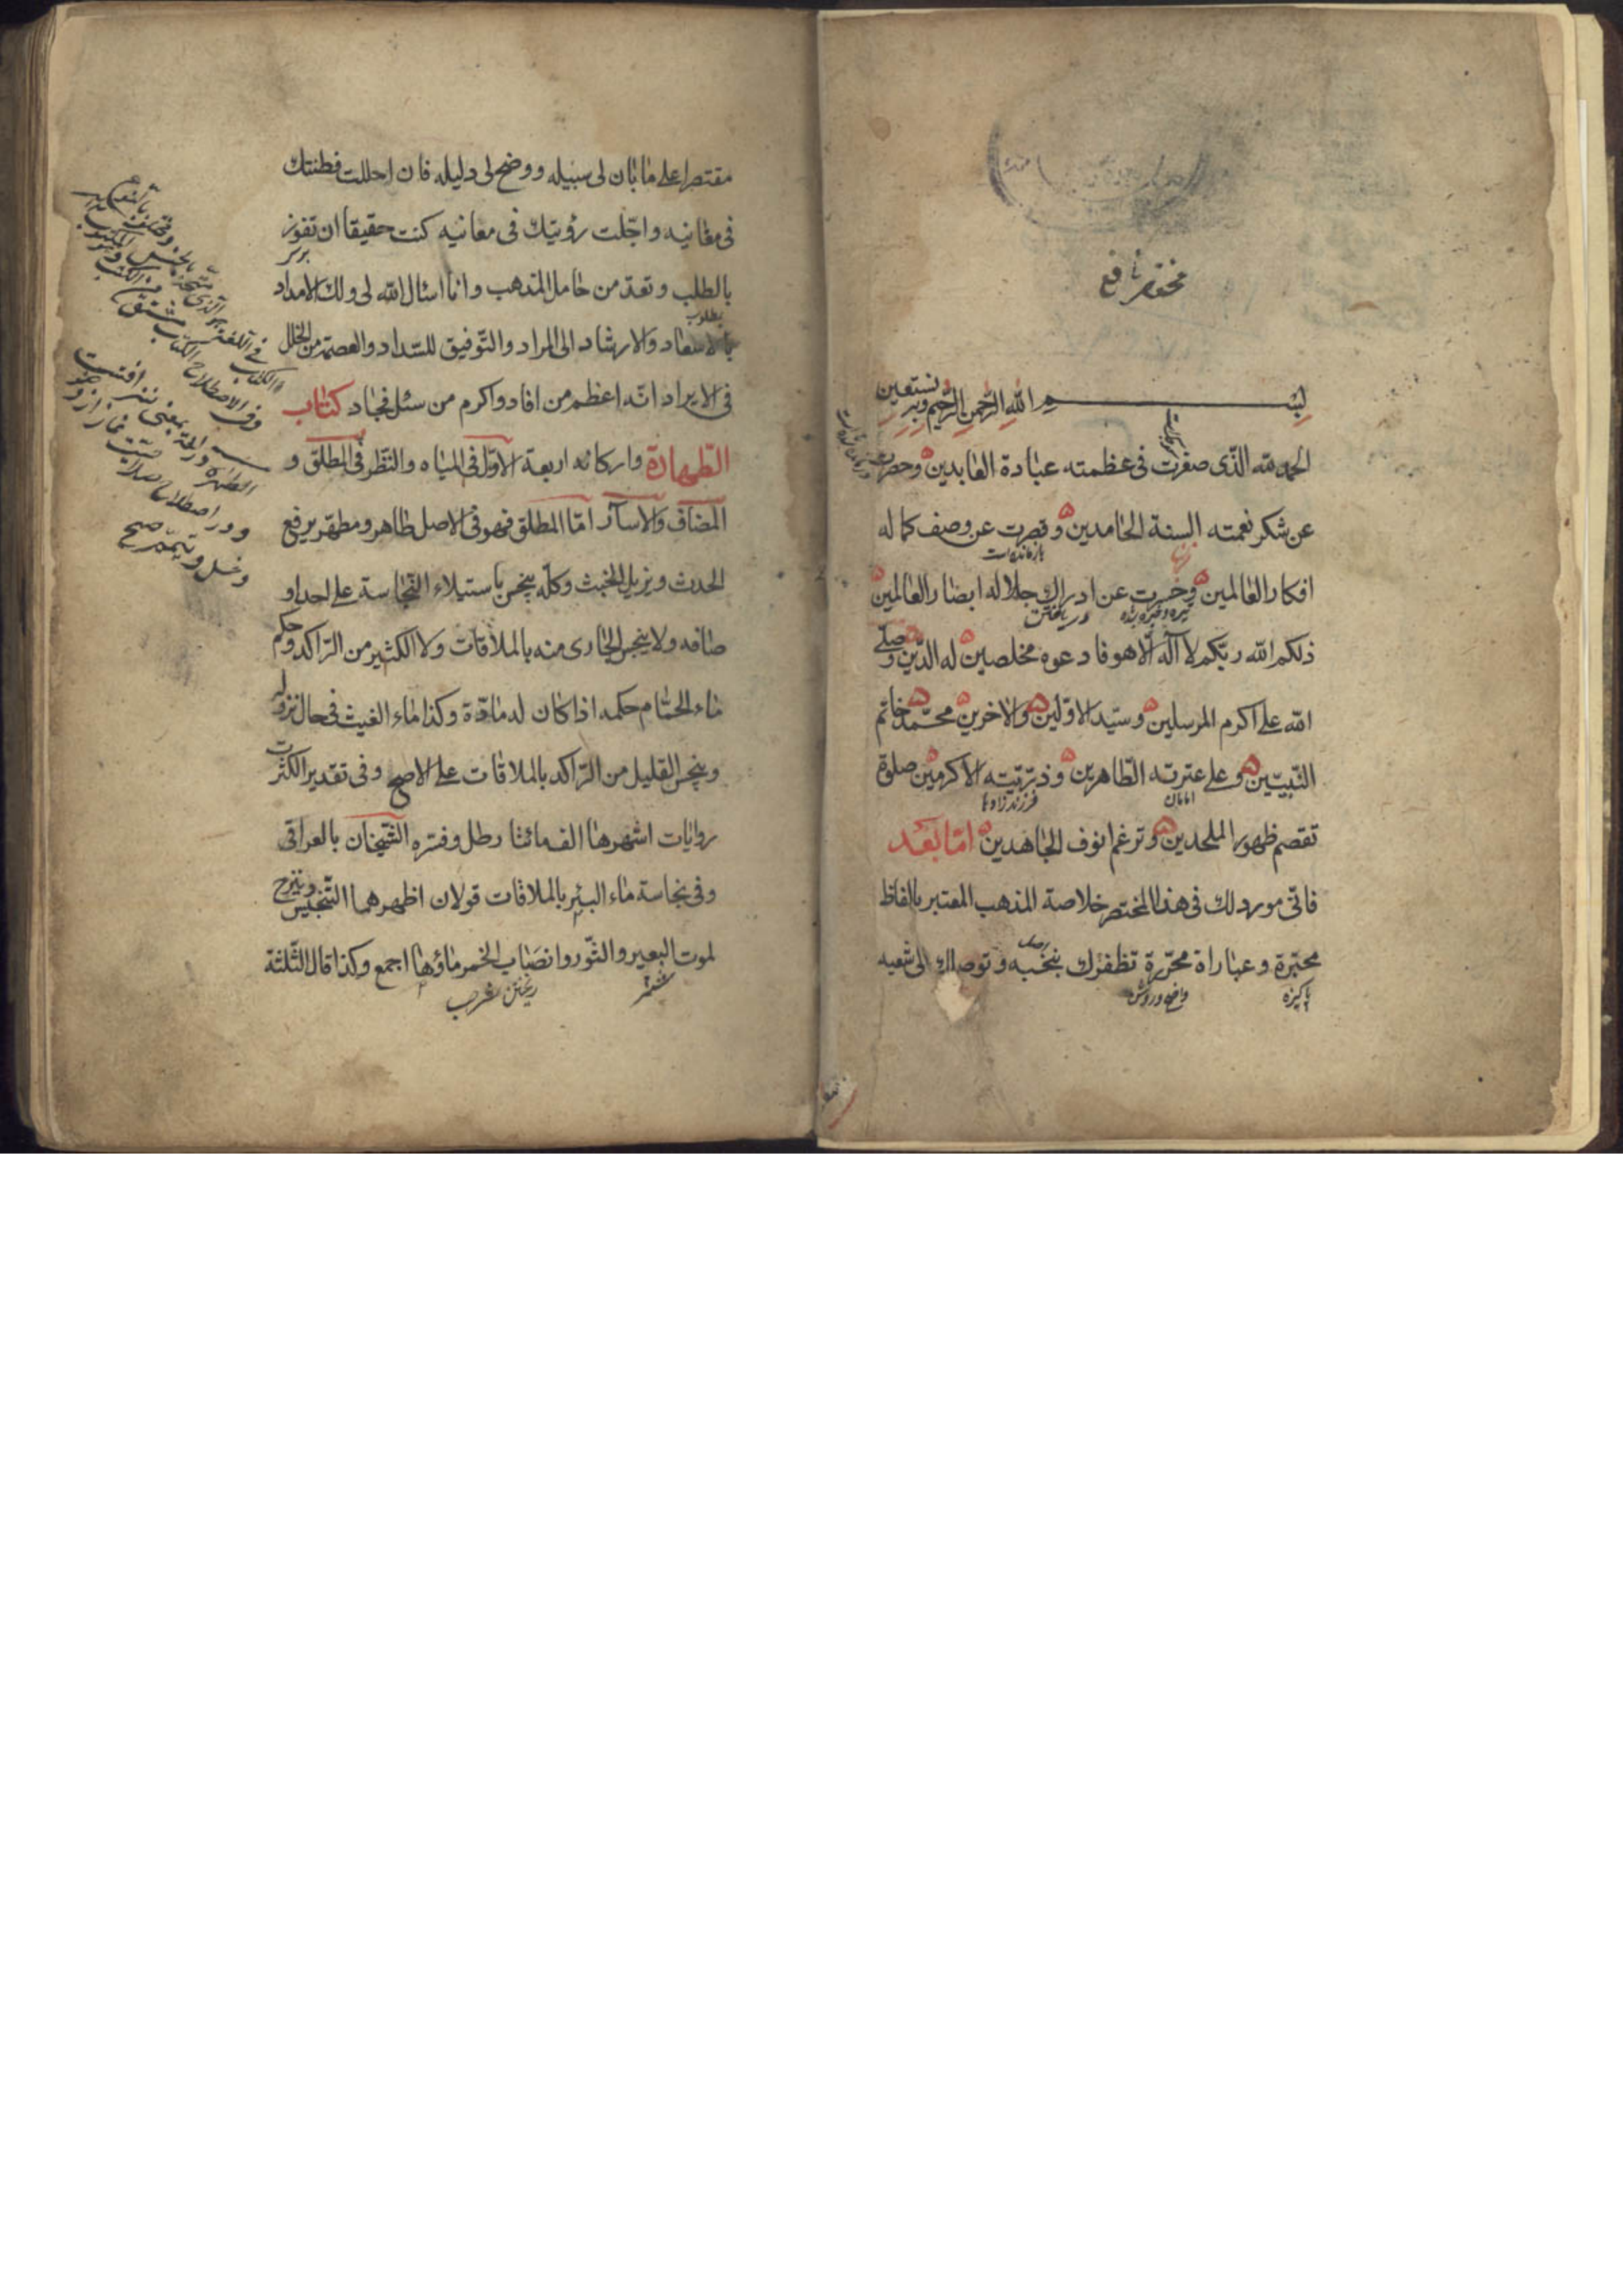 مختصر نافع
بسم الله الرحمن الرحيم وبه نستعين
الحمد لله الذى صغرت فى عظمته عبادة العابدين وحصرت
عن شكر نعمته السنة الحامدين وقصرت عن وصف كماله
زبانها
بازمانده است
افكار العالمين وخسرت عن ادراك جلاله ابصار العالمين
تيره وخيره شده
دريافتن
ذلكم الله ربكم لا اله الا هو فادعوه مخلصين له الدين وصلى
الله على اكرم المرسلين وسيد الاولين والاخرين محمد خاتم
النبيين وعلى عترته الطاهرين وذريته الاكرمين صلوة
امامان
فرزندزادها
تقصم ظهور الملحدين وترغم انوف الجاهدين اما بعد
فانى مورد لك فى هذا المختصر خلاصة المذهب المعتبر بالفاظ
محبرة وعباراة محررة تظفرك بنخبه وتوصلك الى شعبه
پاكيزه
واضح وروشن
مقتصرا على ما بان لى سبيله ووضح لى دليله فان احللت فطنتك
فى مغانيه واجلت رؤيتك فى معانيه كنت حقيقا ان تفوز
بالطلب وتعد من حامل المذهب وانا اسئال الله لى ولك الامداد
مطلوب
بالاسعاد والارشاد الى المراد والتوفيق للسداد والعصمة من الخلل
فى الايراد انه اعظم من افاد واكرم من سئل فجاد كتاب
الطهارة واركانه اربعة الاول فى المياه والنظر فى المطلق و
المضاف والاسآر اما المطلق فهو فى الاصل طاهر ومطهر يرفع
الحدث ويزيل الخبث وكله ينجس باستيلاء النجاسة على احد او
صافه ولا ينجس الجارى منه بالملاقات ولا الكثير من الراكد وحكم
ماء الحمام حكمه اذا كان له مادة وكذا ماء الغيث فى حال نزوله
وينجس القليل من الراكد بالملاقات على الاصح وفى تقدير الكثرت
روايات اشهرها الف مائتا رطل وفسره الشيخان بالعراقى
وفى نجاسة ماء البئر بالملاقات قولان اظهرهما التنجيس وينزح
لموت البعير والثور وانصباب الخمر ماؤها اجمع وكذا قال الثلثة
شتر
ريختن شراب